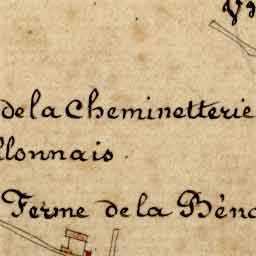 de la Cheminetterie
llonnais.
Ferme de la Béno